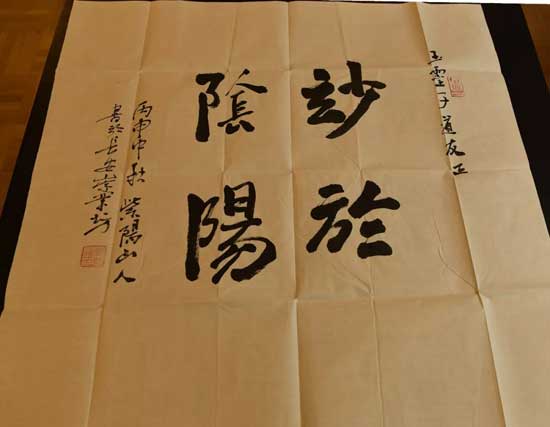 玉靈子道友正
玅於
陰陽
丙申中秋紫陽山人
書於長安崇業坊